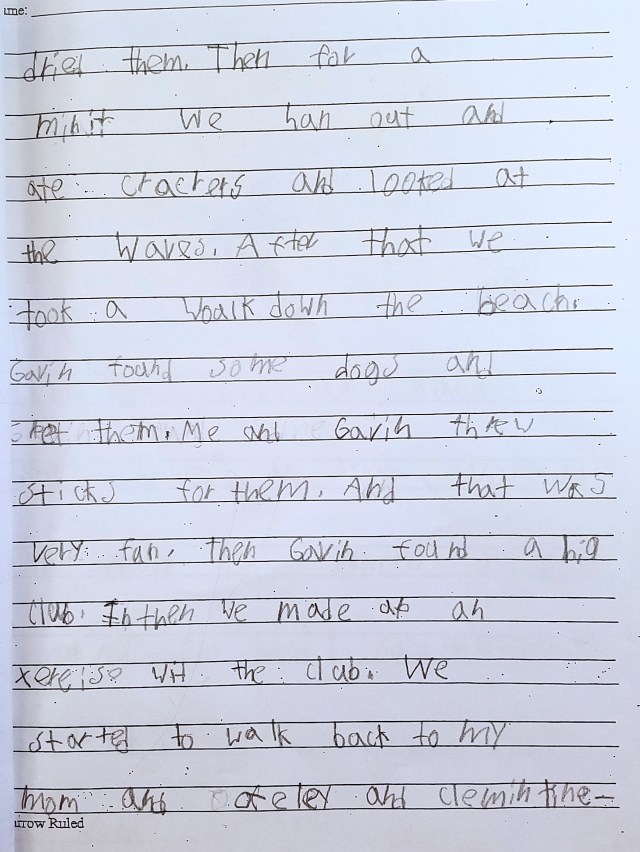 ame:
dried them. Then for a
minit we han out and
ate crackers and looked at
the waves. After that we
took a woalk down the beach.
Gavin found some dogs and
them. Me and Gavin threw
sticks for them. And that was
very fun. Then Gavin found a big
club. In then we made an
xereise wit the club. We
started to walk back to my
mom and and clemintine-
arrow Ruled